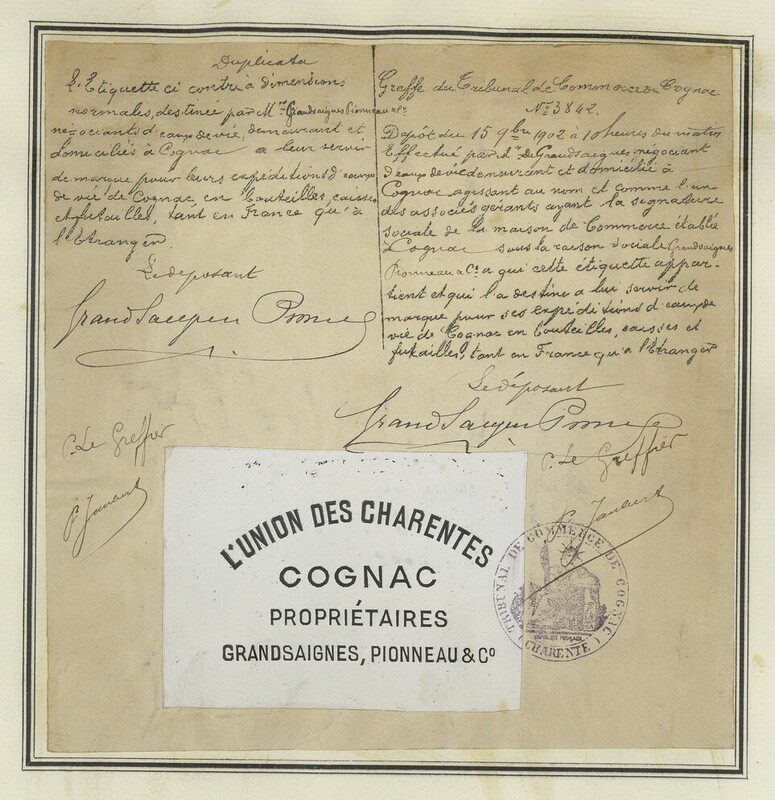 Duplicata
L'Etiquette ci contre à dimensions
normales, destinée par M.rs Grandsaignes Pionneau & Cie
négociants d'eaux de vie, demeurant et
domiciliés à Cognac a leur servir
de marque pour leurs expéditions d'eaux
de vie de Cognac, en bouteilles, caisses
et futailles, tant en France qu'à
l'Etranger.
Le déposant
Grandsaignes Pionneau
P. Le Greffier
Greffe du Tribunal de Commerce de Cognac
No 3842.
Dépôt du 15 9bre 1902 à 10 heures du matin
Effectué par M. de Grandsaignes négociant
d'eaux de vie demeurant et domicilié à
Cognac, agissant au nom et comme l'un
des associés gérants ayant la signature
sociale de la maison de Commerce établie
à Cognac sous la raison sociale Grandsaignes
Pionneau & Cie a qui cette étiquette appar-
tient et qui l'a destine a lui servir de
marque pour ses expéditions d'eaux de
vie de Cognac en bouteilles, caisses et
futailles, tant en France qu'à l'Etranger
Le déposant
Grandsaignes Pionneau
P. Le Greffier
L'UNION DES CHARENTES
COGNAC
PROPRIÉTAIRES
GRANDSAIGNES, PIONNEAU & Co
TRIBUNAL DE COMMERCE DE COGNAC
(CHARENTE)